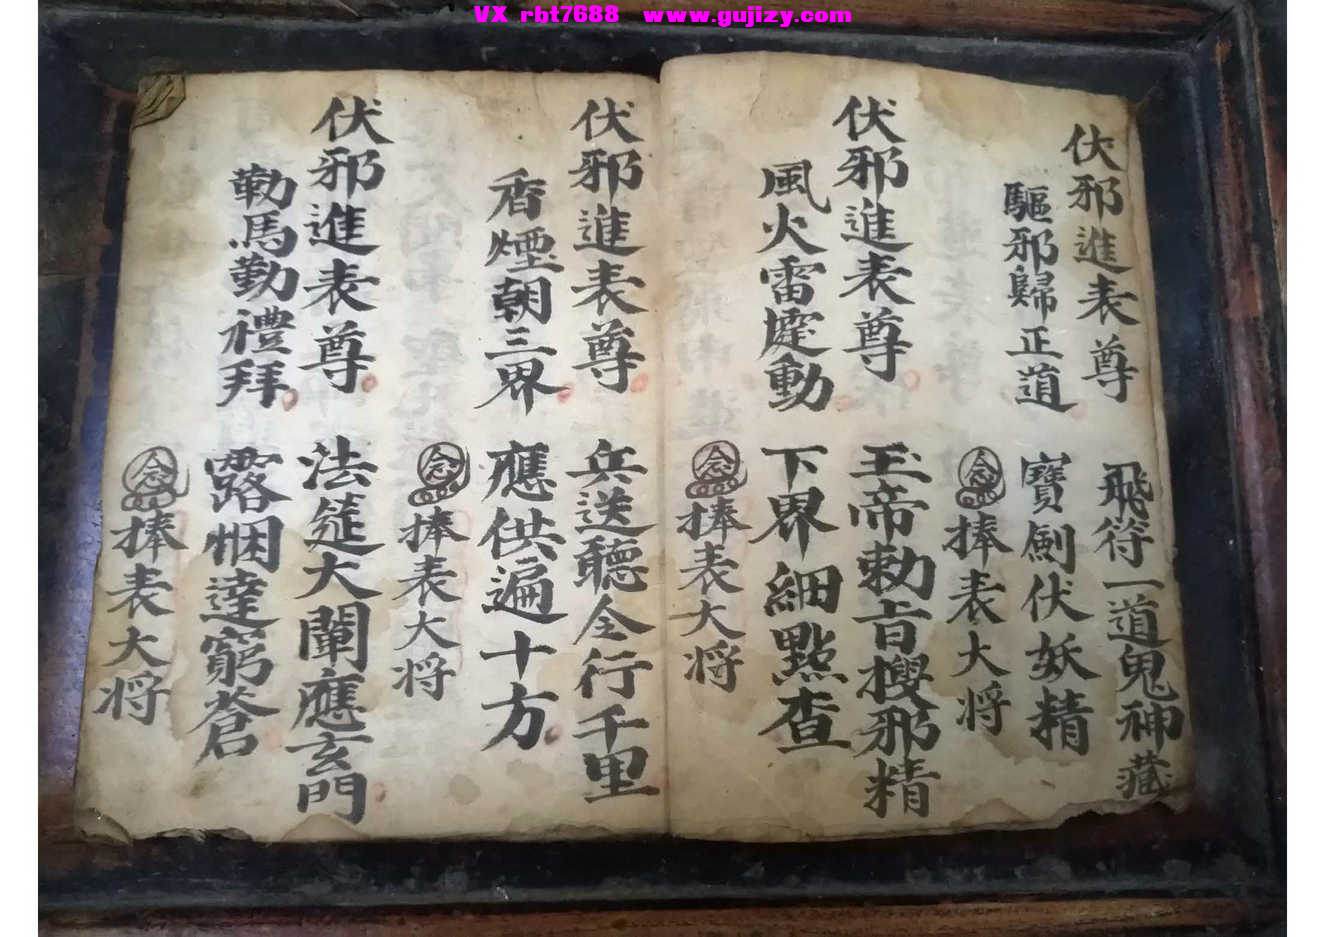 VX rbt7688 www.gujizy.com
伏邪進表尊
飛符一道鬼神藏
驅邪歸正道
寶劍伏妖精
念 捧表大将
伏邪進表尊
玉帝勅旨搜邪精
風火雷霆動
下界細點查
念 捧表大将
伏邪進表尊
兵送聽令行千里
香煙朝三界
應供遍十方
念 捧表大将
伏邪進表尊
法筵大闡應玄門
勒馬勤禮拜
露悃達窮蒼
念 捧表大将